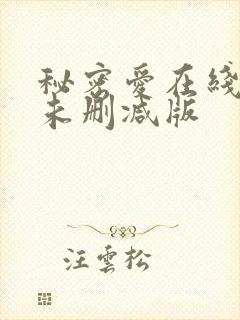 秘密愛在綫
未删减版
汪雲松